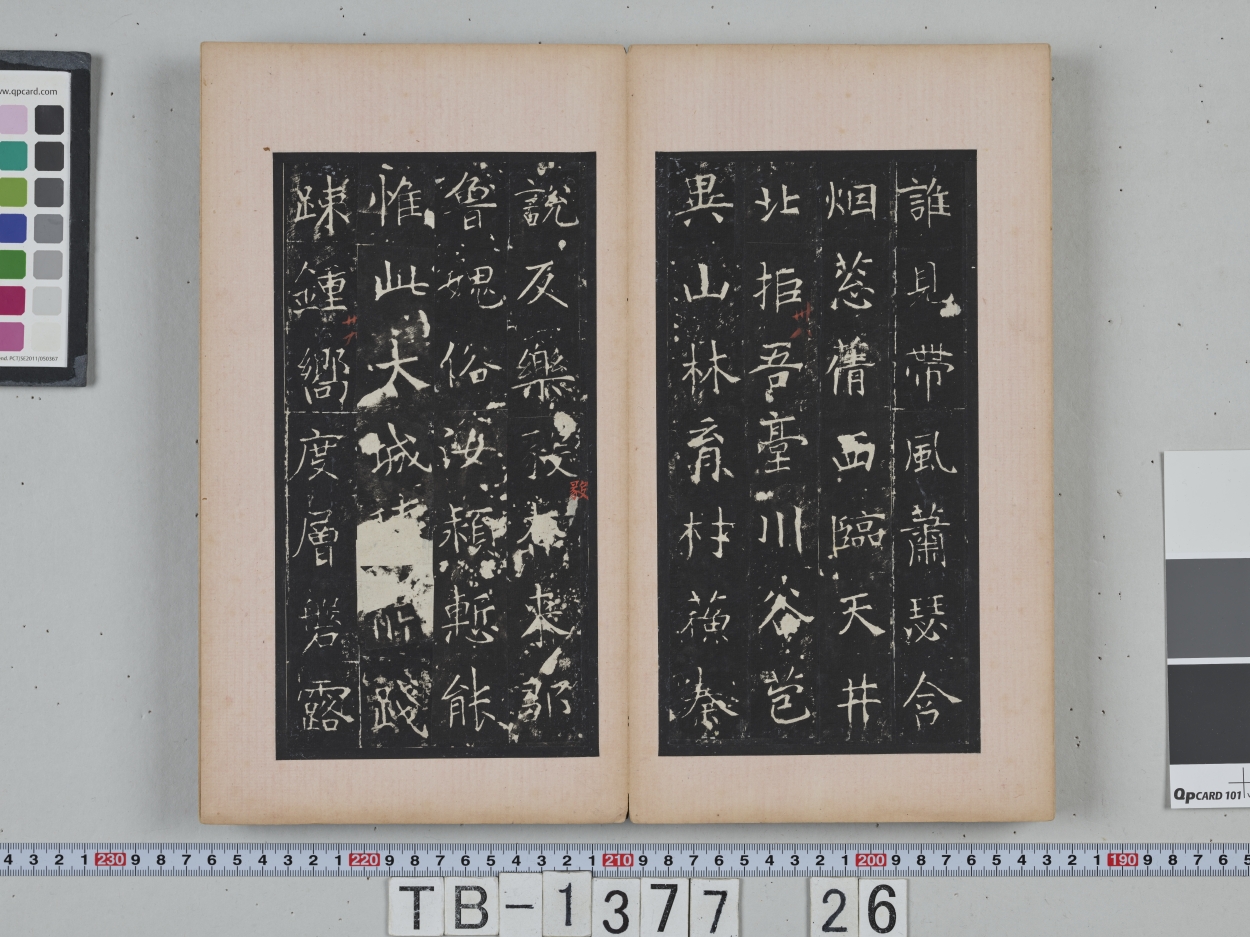 誰見帶風蕭瑟含
烟葱蒨西臨天井
北拒吾臺川谷苞
異山林育材蘓秦
說反樂毅奔來鄒
魯愧俗汝潁慙能
惟此大城所踐
踈鍾嚮度層磐露
毅
www.qpcard.com
QPCARD 101
4 3 2 1 230 9 8 7 6 5 4 3 2 1 220 9 8 7 6 5 4 3 2 1 210 9 8 7 6 5 4 3 2 1 200 9 8 7 6 5 4 3 2 1 190 9 8 7 6 5
TB-1377 26